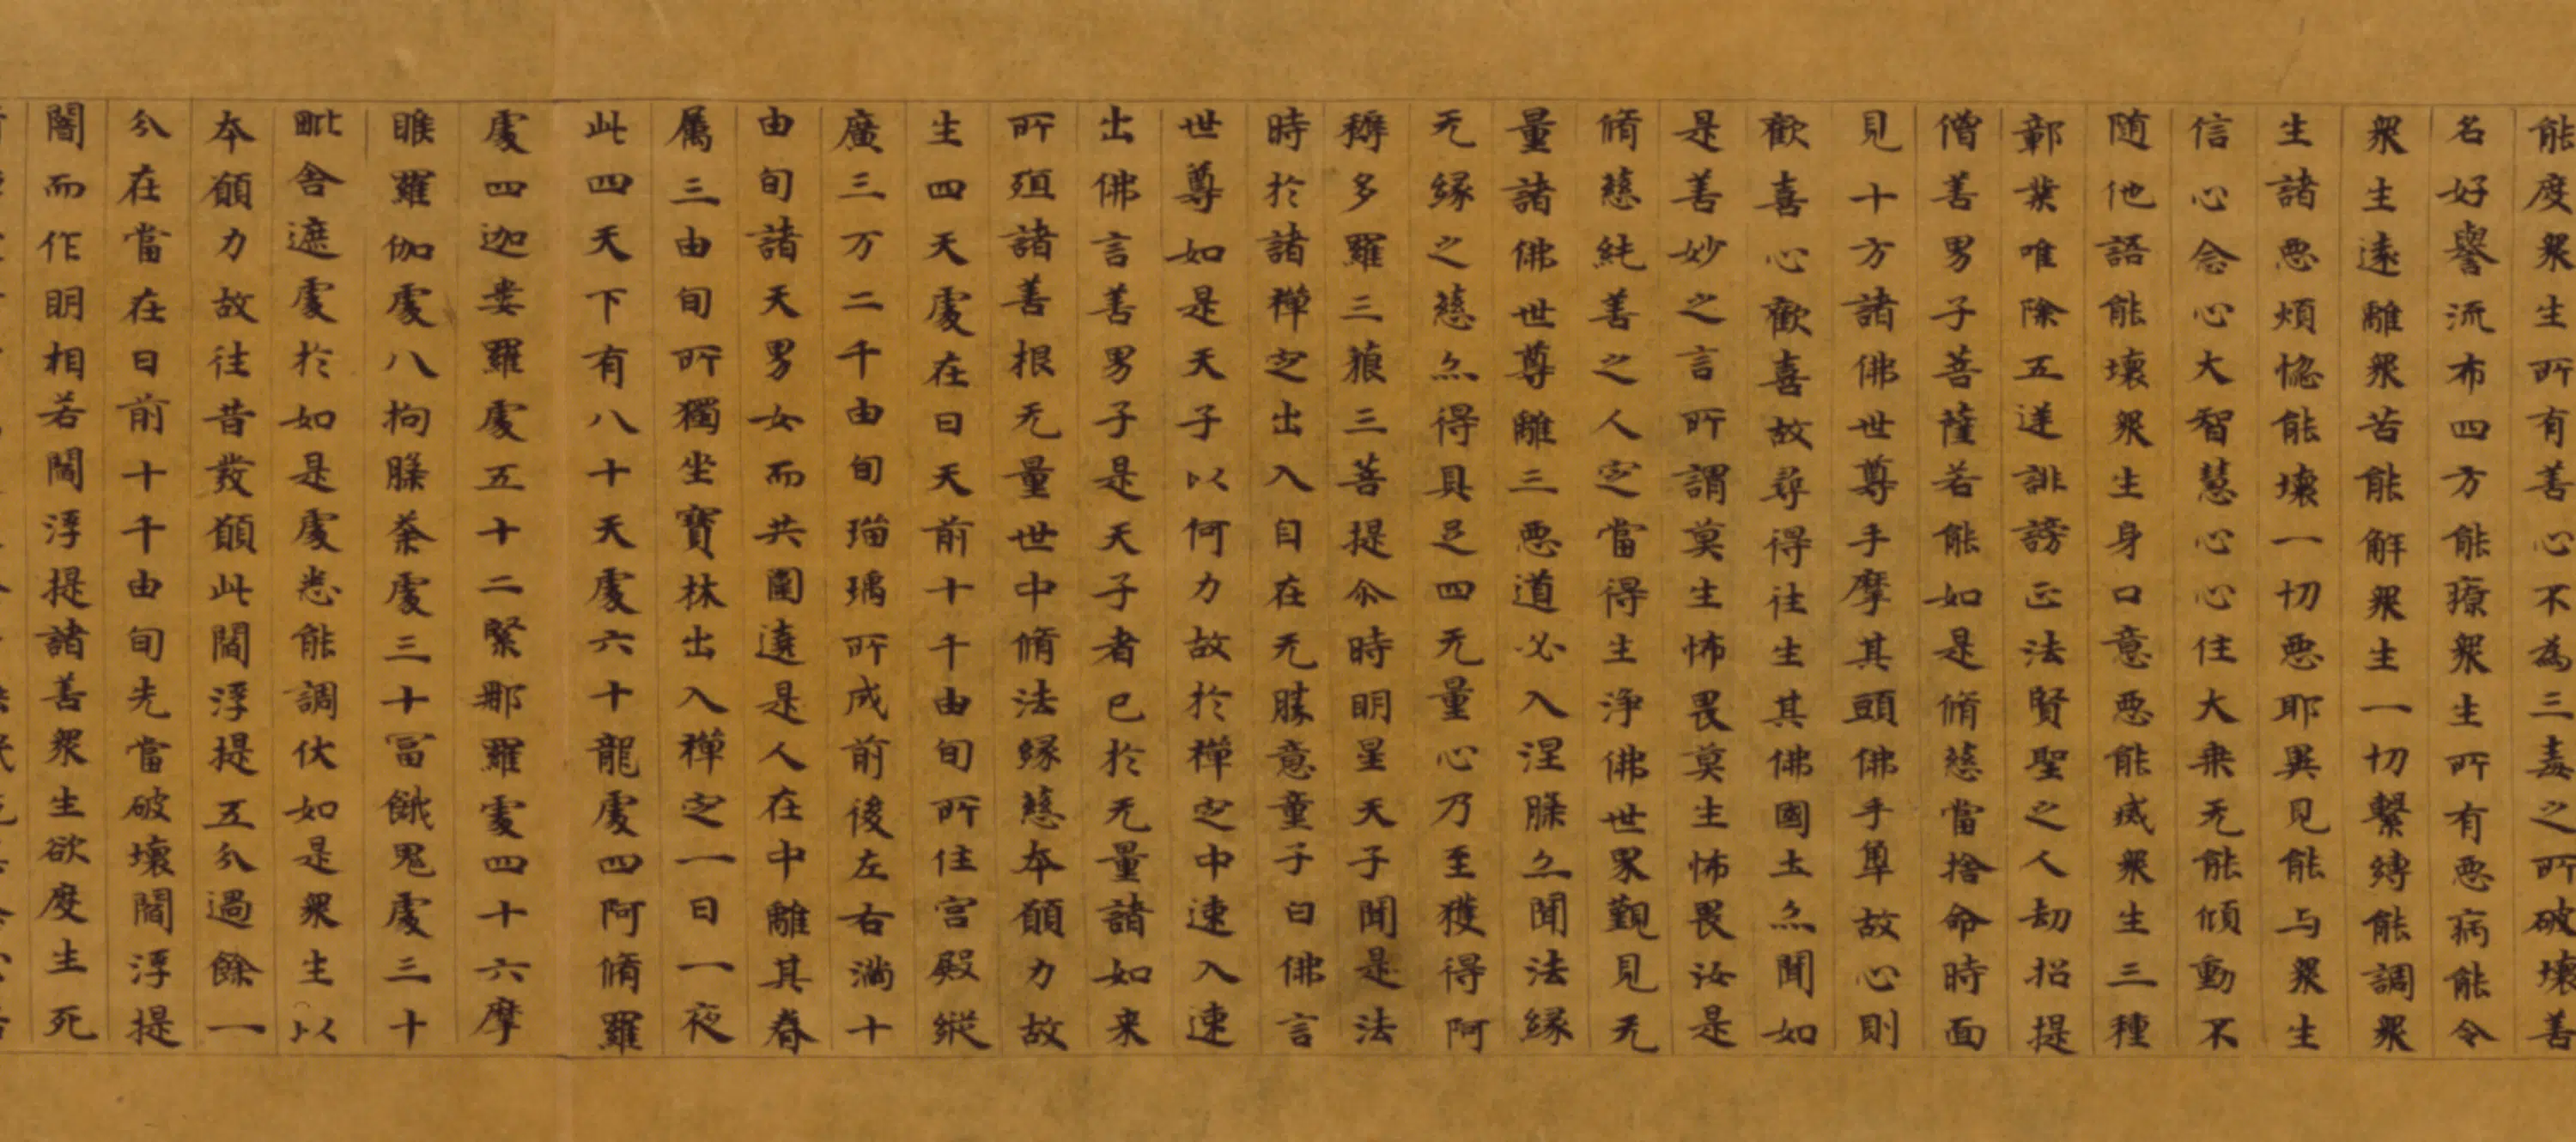 能度衆生所有善心不為三毒之所破壞善
名好譽流布四方能療衆生所有惡病能令
衆生遠離衆苦能解衆生一切繫縛能調衆
生諸惡煩惱能壞一切惡耶異見能与衆生
信心念心大智慧心心住大乗无能傾動不
随他語能壞衆生身口意惡能滅衆生三種
鄣業唯除五逆誹謗正法賢聖之人劫招提
僧善男子菩薩若能如是脩慈當捨命時面
見十方諸佛世尊手摩其頭佛手單故心則
歡喜心歡喜故尋得往生其佛國土亦聞如
是善妙之言所謂莫生怖畏莫生怖畏汝是
脩慈純善之人定當得生浄佛世界覲見无
量諸佛世尊離三惡道必入涅槃亦聞法緣
无緣之慈亦得具足四无量心乃至獲得阿
耨多羅三藐三菩提尒時明星天子聞是法
時於諸禅定出入自在无勝意童子白佛言
世尊如是天子以何力故於禅定中速入速
出佛言善男子是天子者已於无量諸如来
所殖諸善根无量世中脩法緣慈本願力故
生四天處在日天前十千由旬所住宮殿縱
廣三万二千由旬瑙瑀所成前後左右滿十
由旬諸天男女而共圍遶是人在中離其眷
属三由旬所獨坐寶林出入禅定一日一夜
此四天下有八十天處六十龍處四阿脩羅
處四迦婁羅處五十二緊那羅處四十六摩
睺羅伽處八拘槃荼處三十冨餓鬼處三十
毗舍遮處於如是處悉能調伏如是衆生以
本願力故往昔發願此閻浮提五分過餘一
分在當在日前十千由旬先當破壞閻浮提
闇而作明相若閻浮提諸善衆生欲度生死